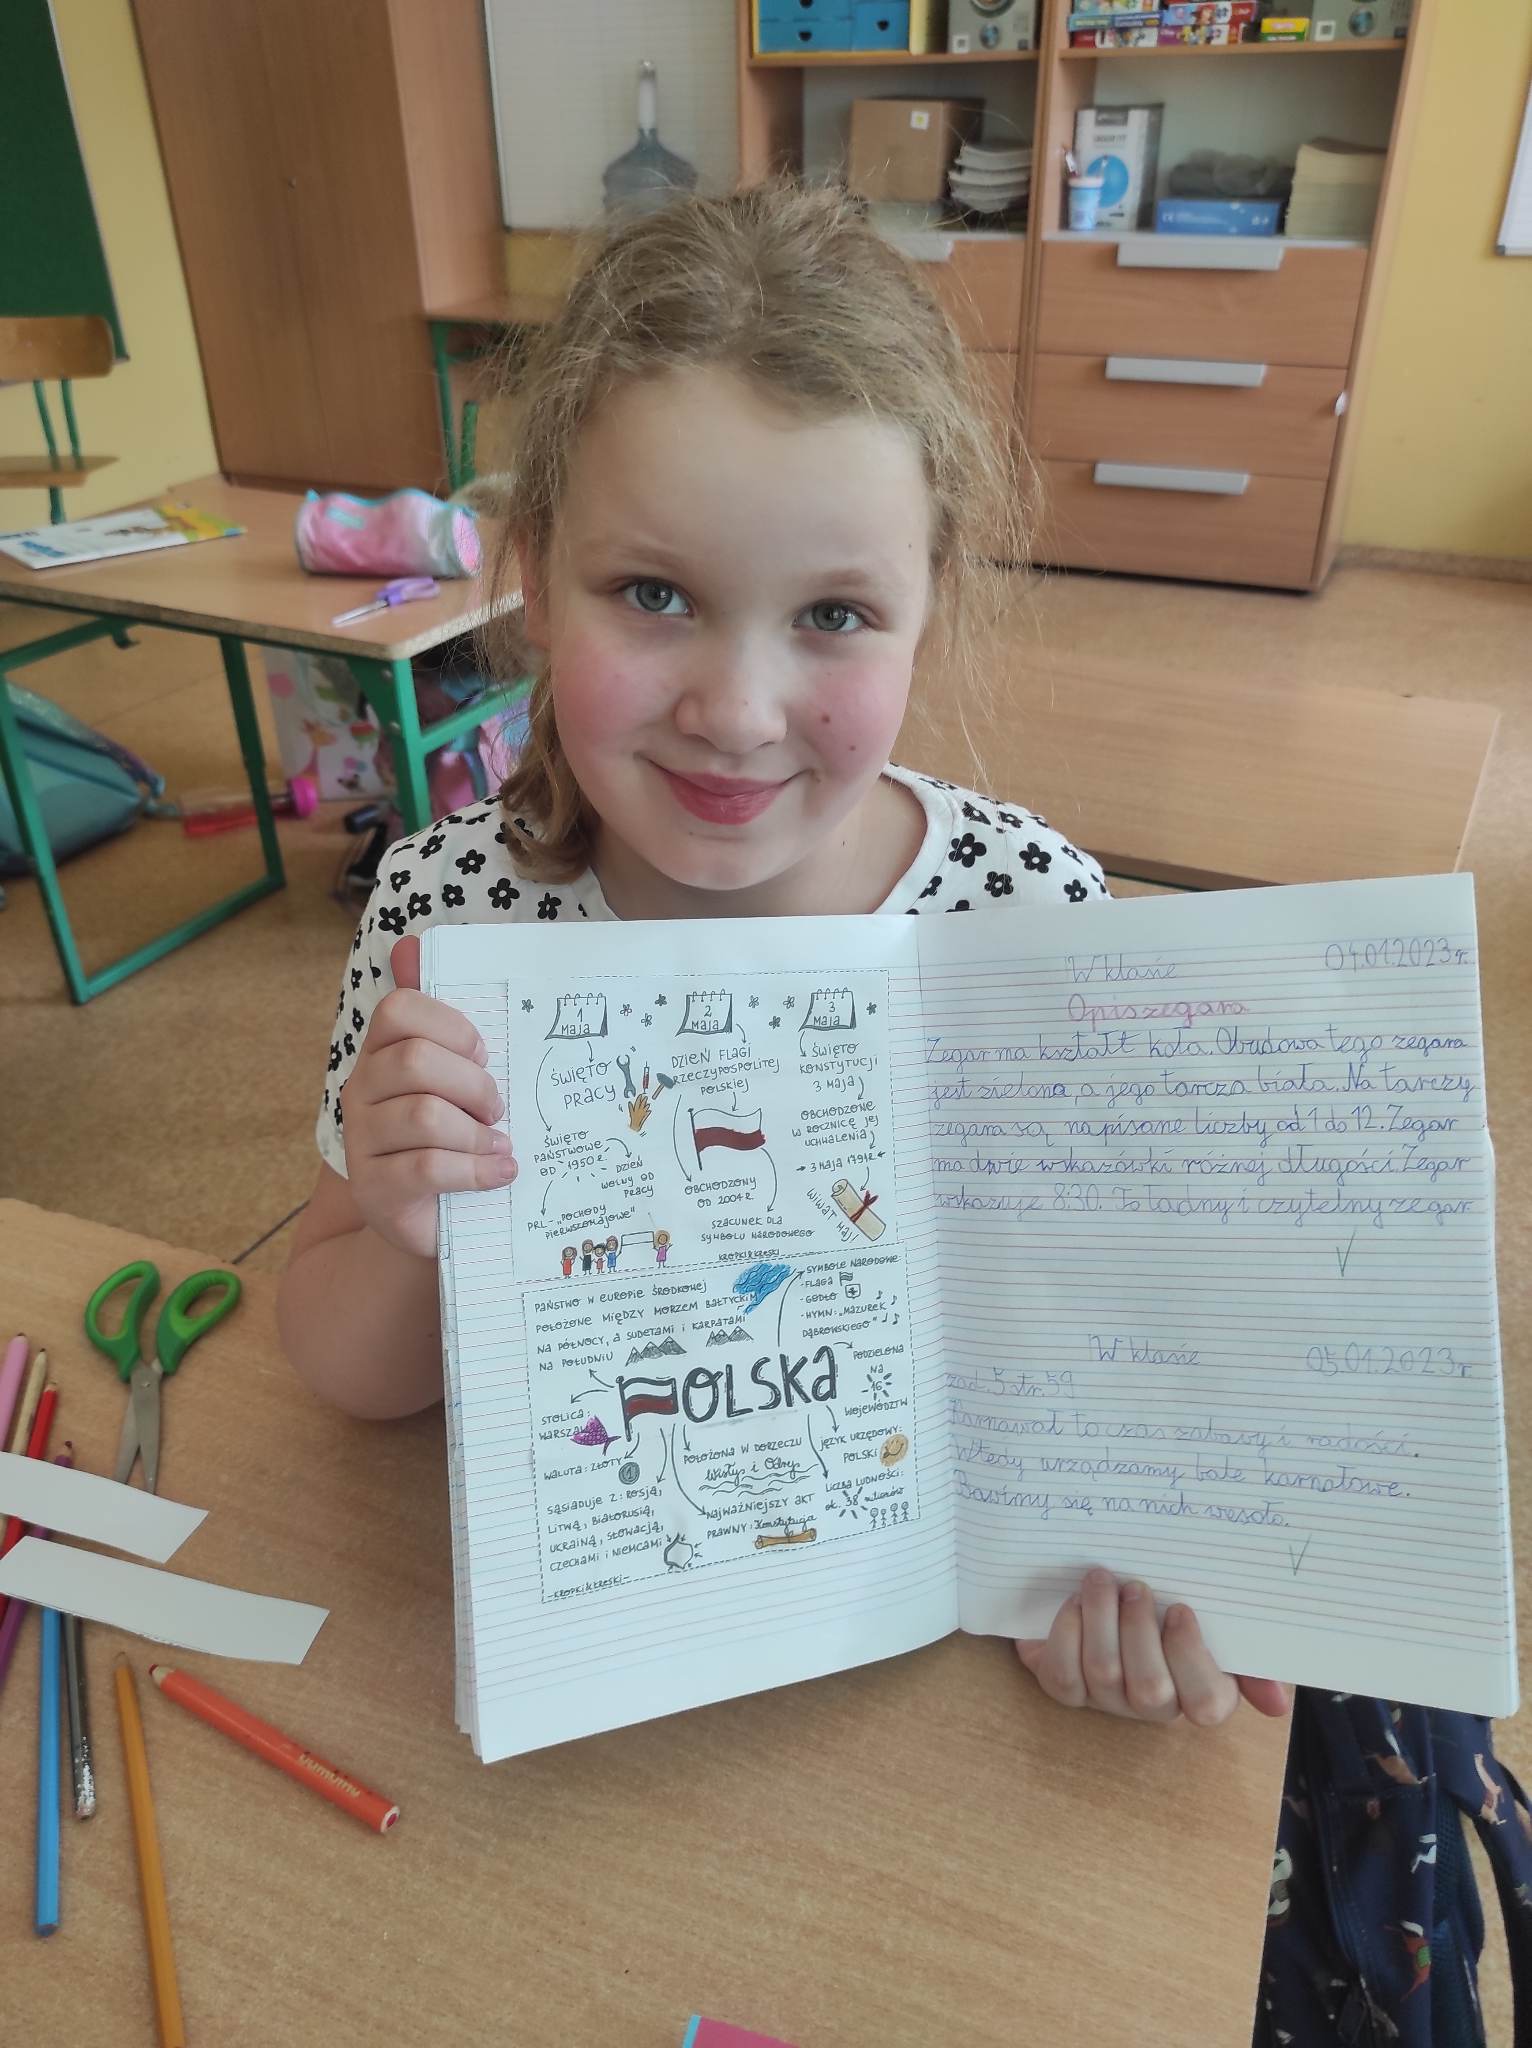 1
Maja
2
Maja
3
Maja
ŚWIĘTO
PRACY
ŚWIĘTO
PAŃSTWOWE
OD 1950 R.
DZIEŃ
WOLNY OD
PRACY
PRL - „POCHODY
PIERWSZOMAJOWE"
DZIEŃ FLAGI
RZECZYPOSPOLITEJ
POLSKIEJ
OBCHODZONY
OD 2004 R.
SZACUNEK DLA
SYMBOLU NARODOWEGO
KROPKI&KRESKI
ŚWIĘTO
KONSTYTUCJI
3 MAJA
OBCHODZONE
W ROCZNICĘ JEJ
UCHWALENIA
3 MAJA 1791R
WIWAT MAJ!
PAŃSTWO W EUROPIE ŚRODKOWEJ
POŁOŻONE MIĘDZY MORZEM BAŁTYCKIM
NA PÓŁNOCY, A SUDETAMI I KARPATAMI
NA POŁUDNIU
SYMBOLE NARODOWE:
- FLAGA
- GODŁO
- HYMN: „MAZUREK
DĄBROWSKIEGO"
POLSKA
PODZIELONA
NA
16
WOJEWÓDZTW
STOLICA:
WARSZAWA
WALUTA: ZŁOTY
1
SĄSIADUJE Z: ROSJĄ,
LITWĄ, BIAŁORUSIĄ,
UKRAINĄ, SŁOWACJĄ,
CZECHAMI I NIEMCAMI
- KROPKI&KRESKI -
POŁOŻONA W DORZECZU
Wisły i Odry
NAJWAŻNIEJSZY AKT
PRAWNY: Konstytucja
JĘZYK URZĘDOWY:
POLSKI
LICZBA LUDNOŚCI:
ok. 38 milionów
W klasie 04.01.2023r.
Opis zegara
Zegar ma kształt koła. Obudowa tego zegara
jest zielona, a jego tarcza biała. Na tarczy
zegara są napisane liczby od 1 do 12. Zegar
ma dwie wskazówki różnej długości. Zegar
wskazuje 8:30. To ładny i czytelny zegar.
W klasie 05.01.2023r.
zad. 5 str. 59
Karnawał to czas zabawy i radości.
Wtedy urządzamy bale karnałowe.
Bawimy się na nich wesoło.
bambino